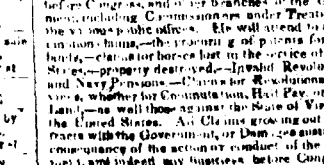 before Congress, and other branches of the
ment, including Commissioners under Treat
the various public offices. He will attend to
land claims,—the procuring of patents for
lands,—claims for horses lost in the service of
States,—property destroyed,—Invalid Revolu
and Navy Pensions—Claims for Revolutionary
vices, whether for Commutation, Half Pay, or
Land,—as well those against the State of Vir
the United States. All Claims growing out
tracts with the Government, or Damages
consequence of the action or conduct of the
and indeed any business before Con
sale
by